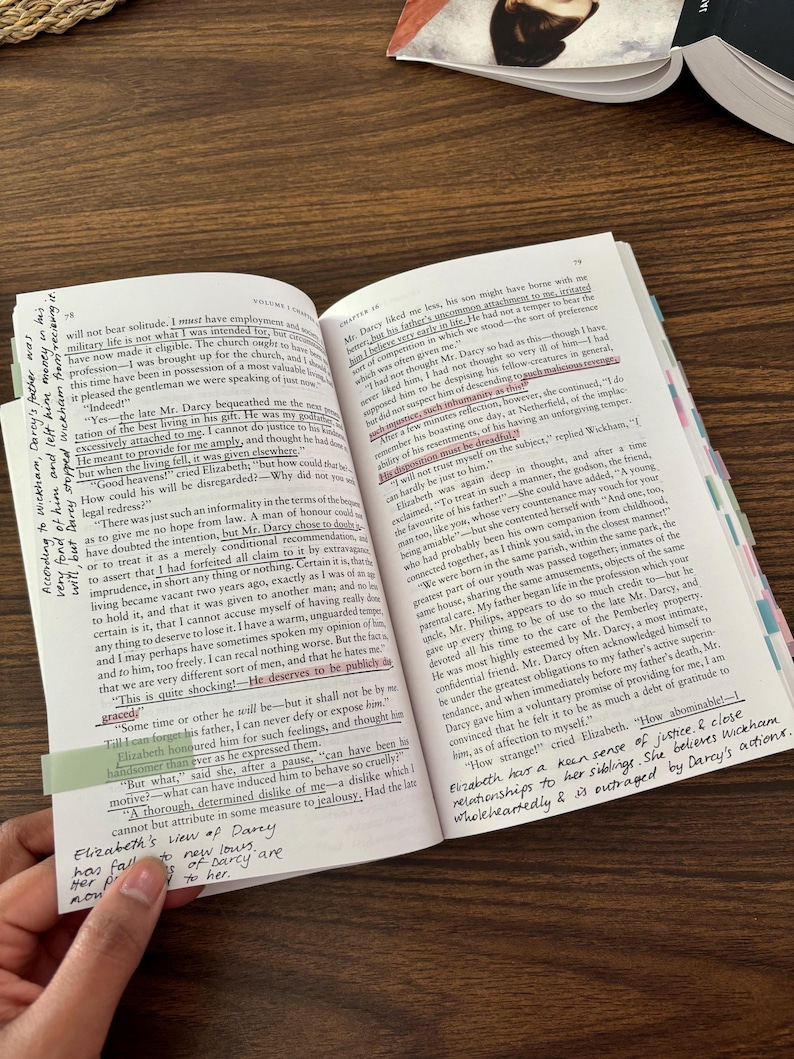 78
VOLUME I CHAPT
will not bear solitude. I must have employment and society
military life is not what I was intended for, but circumstan
have now made it eligible. The church ought to have been
profession—I was brought up for the church, and I should
this time have been in possession of a most valuable living, had
it pleased the gentleman we were speaking of just now."
"Indeed!"
"Yes—the late Mr. Darcy bequeathed me the next presen
tation of the best living in his gift. He was my godfather, and
excessively attached to me. I cannot do justice to his kindness.
He meant to provide for me amply, and thought he had done
but when the living fell, it was given elsewhere."
"Good heavens!" cried Elizabeth; "but how could that be?—
How could his will be disregarded?—Why did not you seek
legal redress?"
"There was just such an informality in the terms of the bequest
as to give me no hope from law. A man of honour could not
have doubted the intention, but Mr. Darcy chose to doubt it—
or to treat it as a merely conditional recommendation, and
to assert that I had forfeited all claim to it by extravagance,
imprudence, in short any thing or nothing. Certain it is, that the
living became vacant two years ago, exactly as I was of an age
to hold it, and that it was given to another man; and no less
certain is it, that I cannot accuse myself of having really done
any thing to deserve to lose it. I have a warm, unguarded temper,
and I may perhaps have sometimes spoken my opinion of him,
and to him, too freely. I can recall nothing worse. But the fact is,
that we are very different sort of men, and that he hates me."
"This is quite shocking!—He deserves to be publicly dis
graced."
"Some time or other he will be—but it shall not be by me.
Till I can forget his father, I can never defy or expose him."
Elizabeth honoured him for such feelings, and thought him
handsomer than ever as he expressed them.
"But what," said she, after a pause, "can have been his
motive?—what can have induced him to behave so cruelly?"
"A thorough, determined dislike of me—a dislike which I
cannot but attribute in some measure to jealousy. Had the late
According to Wickham, Darcy's father was
very fond of him and left him money in his
will, but Darcy stopped Wickham from recieving it.
Elizabeth's view of Darcy
has to new lows.
Her of Darcy are
to her.
CHAPTER 16
79
Mr. Darcy liked me less, his son might have borne with me
better; but his father's uncommon attachment to me, irritated
him I believe very early in life. He had not a temper to bear the
sort of competition in which we stood—the sort of preference
which was often given me."
"I had not thought Mr. Darcy so bad as this—though I have
never liked him, I had not thought so very ill of him—I had
supposed him to be despising his fellow-creatures in general,
but did not suspect him of descending to such malicious revenge,
such injustice, such inhumanity as this!"
After a few minutes reflection, however, she continued, "I do
remember his boasting one day, at Netherfield, of the implac-
ability of his resentments, of his having an unforgiving temper.
His disposition must be dreadful."
"I will not trust myself on the subject," replied Wickham, "I
can hardly be just to him."
Elizabeth was again deep in thought, and after a time
exclaimed, "To treat in such a manner, the godson, the friend,
the favourite of his father!"—She could have added, "A young
man too, like you, whose very countenance may vouch for your
being amiable"—but she contented herself with "And one, too,
who had probably been his own companion from childhood,
connected together, as I think you said, in the closest manner!"
"We were born in the same parish, within the same park, the
greatest part of our youth was passed together; inmates of the
same house, sharing the same amusements, objects of the same
parental care. My father began life in the profession which your
uncle, Mr. Philips, appears to do so much credit to—but he
gave up every thing to be of use to the late Mr. Darcy, and
devoted all his time to the care of the Pemberley property.
He was most highly esteemed by Mr. Darcy, a most intimate,
confidential friend. Mr. Darcy often acknowledged himself to
be under the greatest obligations to my father's active superin-
tendance, and when immediately before my father's death, Mr.
Darcy gave him a voluntary promise of providing for me, I am
convinced that he felt it to be as much a debt of gratitude to
him, as of affection to myself."
"How strange!" cried Elizabeth. "How abominable!—I
Elizabeth has a keen sense of justice & close
relationships to her siblings. She believes Wickham
wholeheartedly & is outraged by Darcy's actions.